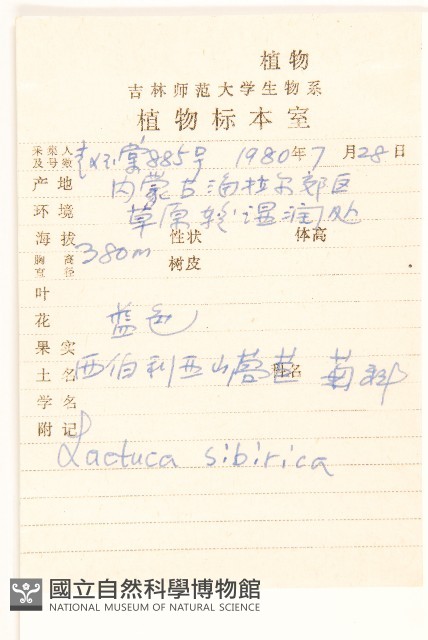 植物
吉林师范大学生物系
植物标本室
采集人及号数 885号 1980年7月28日
产地 内蒙古海拉尔郊区
环境 草原较湿润处
海拔 380m 性状 体高
胸高直径 树皮
叶
花 蓝色
果实
土名 西伯利亚山莴苣 菊科
学名
附记
Lactuca sibirica
國立自然科學博物館
NATIONAL MUSEUM OF NATURAL SCIENCE